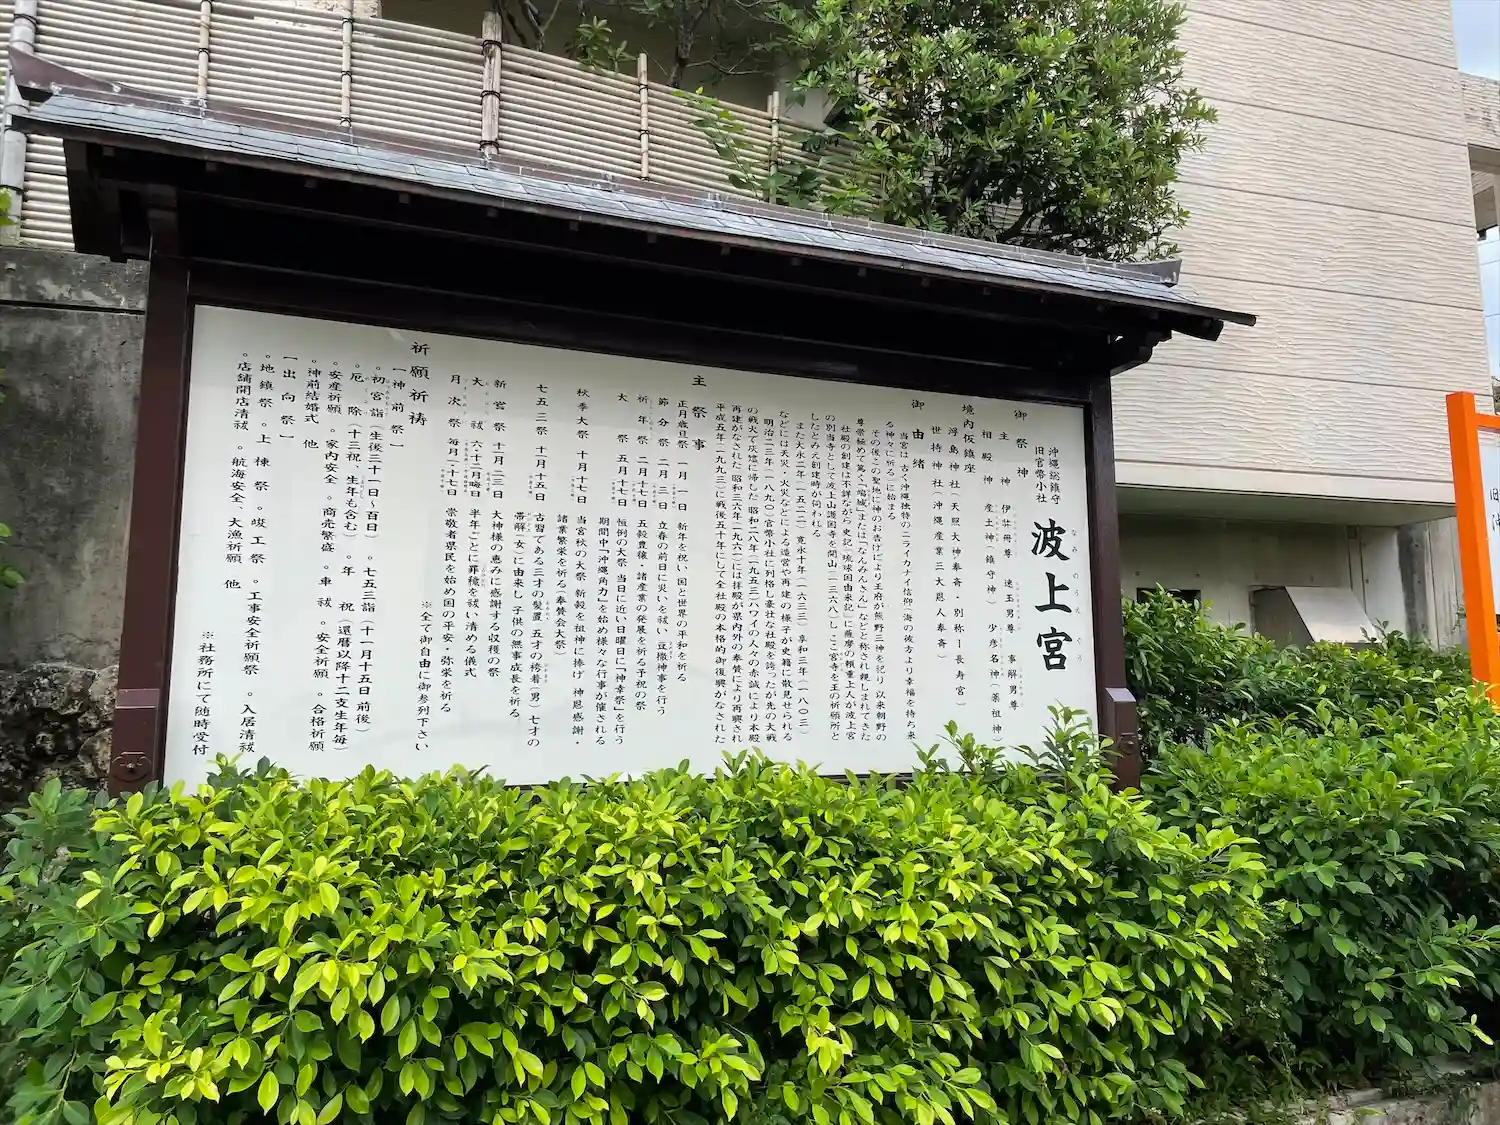 沖縄総鎮守
旧官幣小社
波上宮
なみのうえぐう
御祭神
主神 伊弉冊尊 速玉男尊 事解男尊
相殿神 産土神(鎮守神) 少彦名神(薬祖神)
境内仮鎮座
浮島神社(天照大神奉斎・別称ー長寿宮)
世持神社(沖縄産業三大恩人奉斎)
御由緒
当宮は、古く沖縄独特のニライカナイ信仰(海の彼方より幸福を持ち来
る神々に祈る)に始まる
その後この聖地に神のお告げにより王府が熊野三神を祀り、以来朝野の
尊崇極めて篤く「端城」または「なんみんさん」などと称され親しまれてきた
社殿の創建は不詳ながら史記「琉球国由来記」に薩摩の頼重上人が波上宮
の別当寺として波上山護国寺を開山(一三六八)し、ここ宮寺を王の祈願所と
したとみえ創建時が伺われる
また大永二年(一五二二)寛永十年(一六三三)享和三年(一八〇三)
などには天災、大火などによる造営や再建の様子が史籍に散見せられる
明治二三年(一八九〇)官幣小社に列格し豪壮な社殿を誇ったが先の大戦
の戦火で灰燼に帰した 昭和二八年(一九五三)ハワイの人々の赤誠により本殿
再建がなされた 昭和三六年(一九六一)には拝殿が県内外の奉賛により再興され
平成五年(一九九三)に戦後五十年にして全社殿の本格的御復興がなされた
主祭事
正月歳旦祭 一月一日 新年を祝い、国と世界の平和を祈る
節分祭 二月三日 立春の前日に災いを祓い、豆撒神事を行う
祈年祭 二月十七日 五穀豊穣・諸産業の発展を祈る予祝の祭
大祭 五月十七日 恒例の大祭 当日に近い日曜日に「神幸祭」を行う
期間中「沖縄角力」を始め様々な行事が催される
秋季大祭 十月十七日 当宮秋の大祭 新穀を祖神に捧げ 神恩感謝・
諸業繁栄を祈る(奉賛会大祭)
七五三祭 十一月十五日 古習である三才の髪置 五才の袴着(男) 七才の
帯解(女)に由来し 子供の無事成長を祈る
新嘗祭 十一月二三日 大神様の恵みに感謝する収穫の祭
大祓 六・十二月晦日 半年ごとに罪穢を祓い清める儀式
月次祭 毎月一・十七日 崇敬者県民を始め国の平安・弥栄を祈る
※全て御自由に御参列下さい
祈願祈祷
【神前祭】
。初宮詣(生後三十一日〜百日) 。七五三詣(十一月十五日前後)
。厄除(十三祝、生年も含む) 。年祝(還暦以降十二支生年毎)
。安産祈願 。家内安全 。商売繁盛 。車祓 。安全祈願 。合格祈願
。神前結婚式 他
【出向祭】
。地鎮祭 。上棟祭 。竣工祭 。工事安全祈願祭 。入居清祓
。店舗開店清祓 。航海安全、大漁祈願 他
※社務所にて随時受付
旧